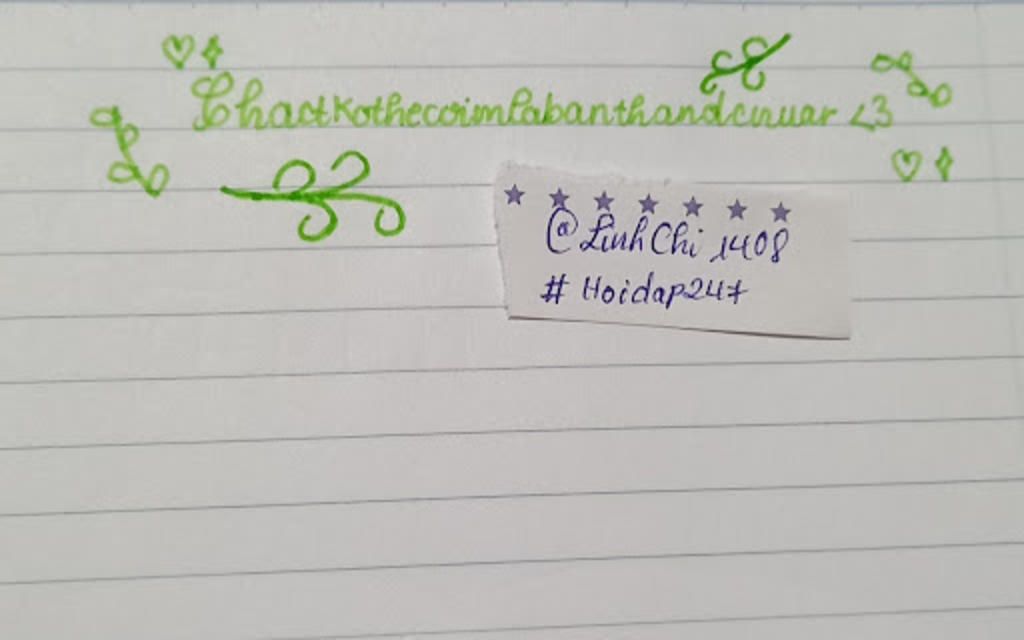 ChactKothecoimlabanthandcuuar <3
@LinhChi 1408
# Hoidap247